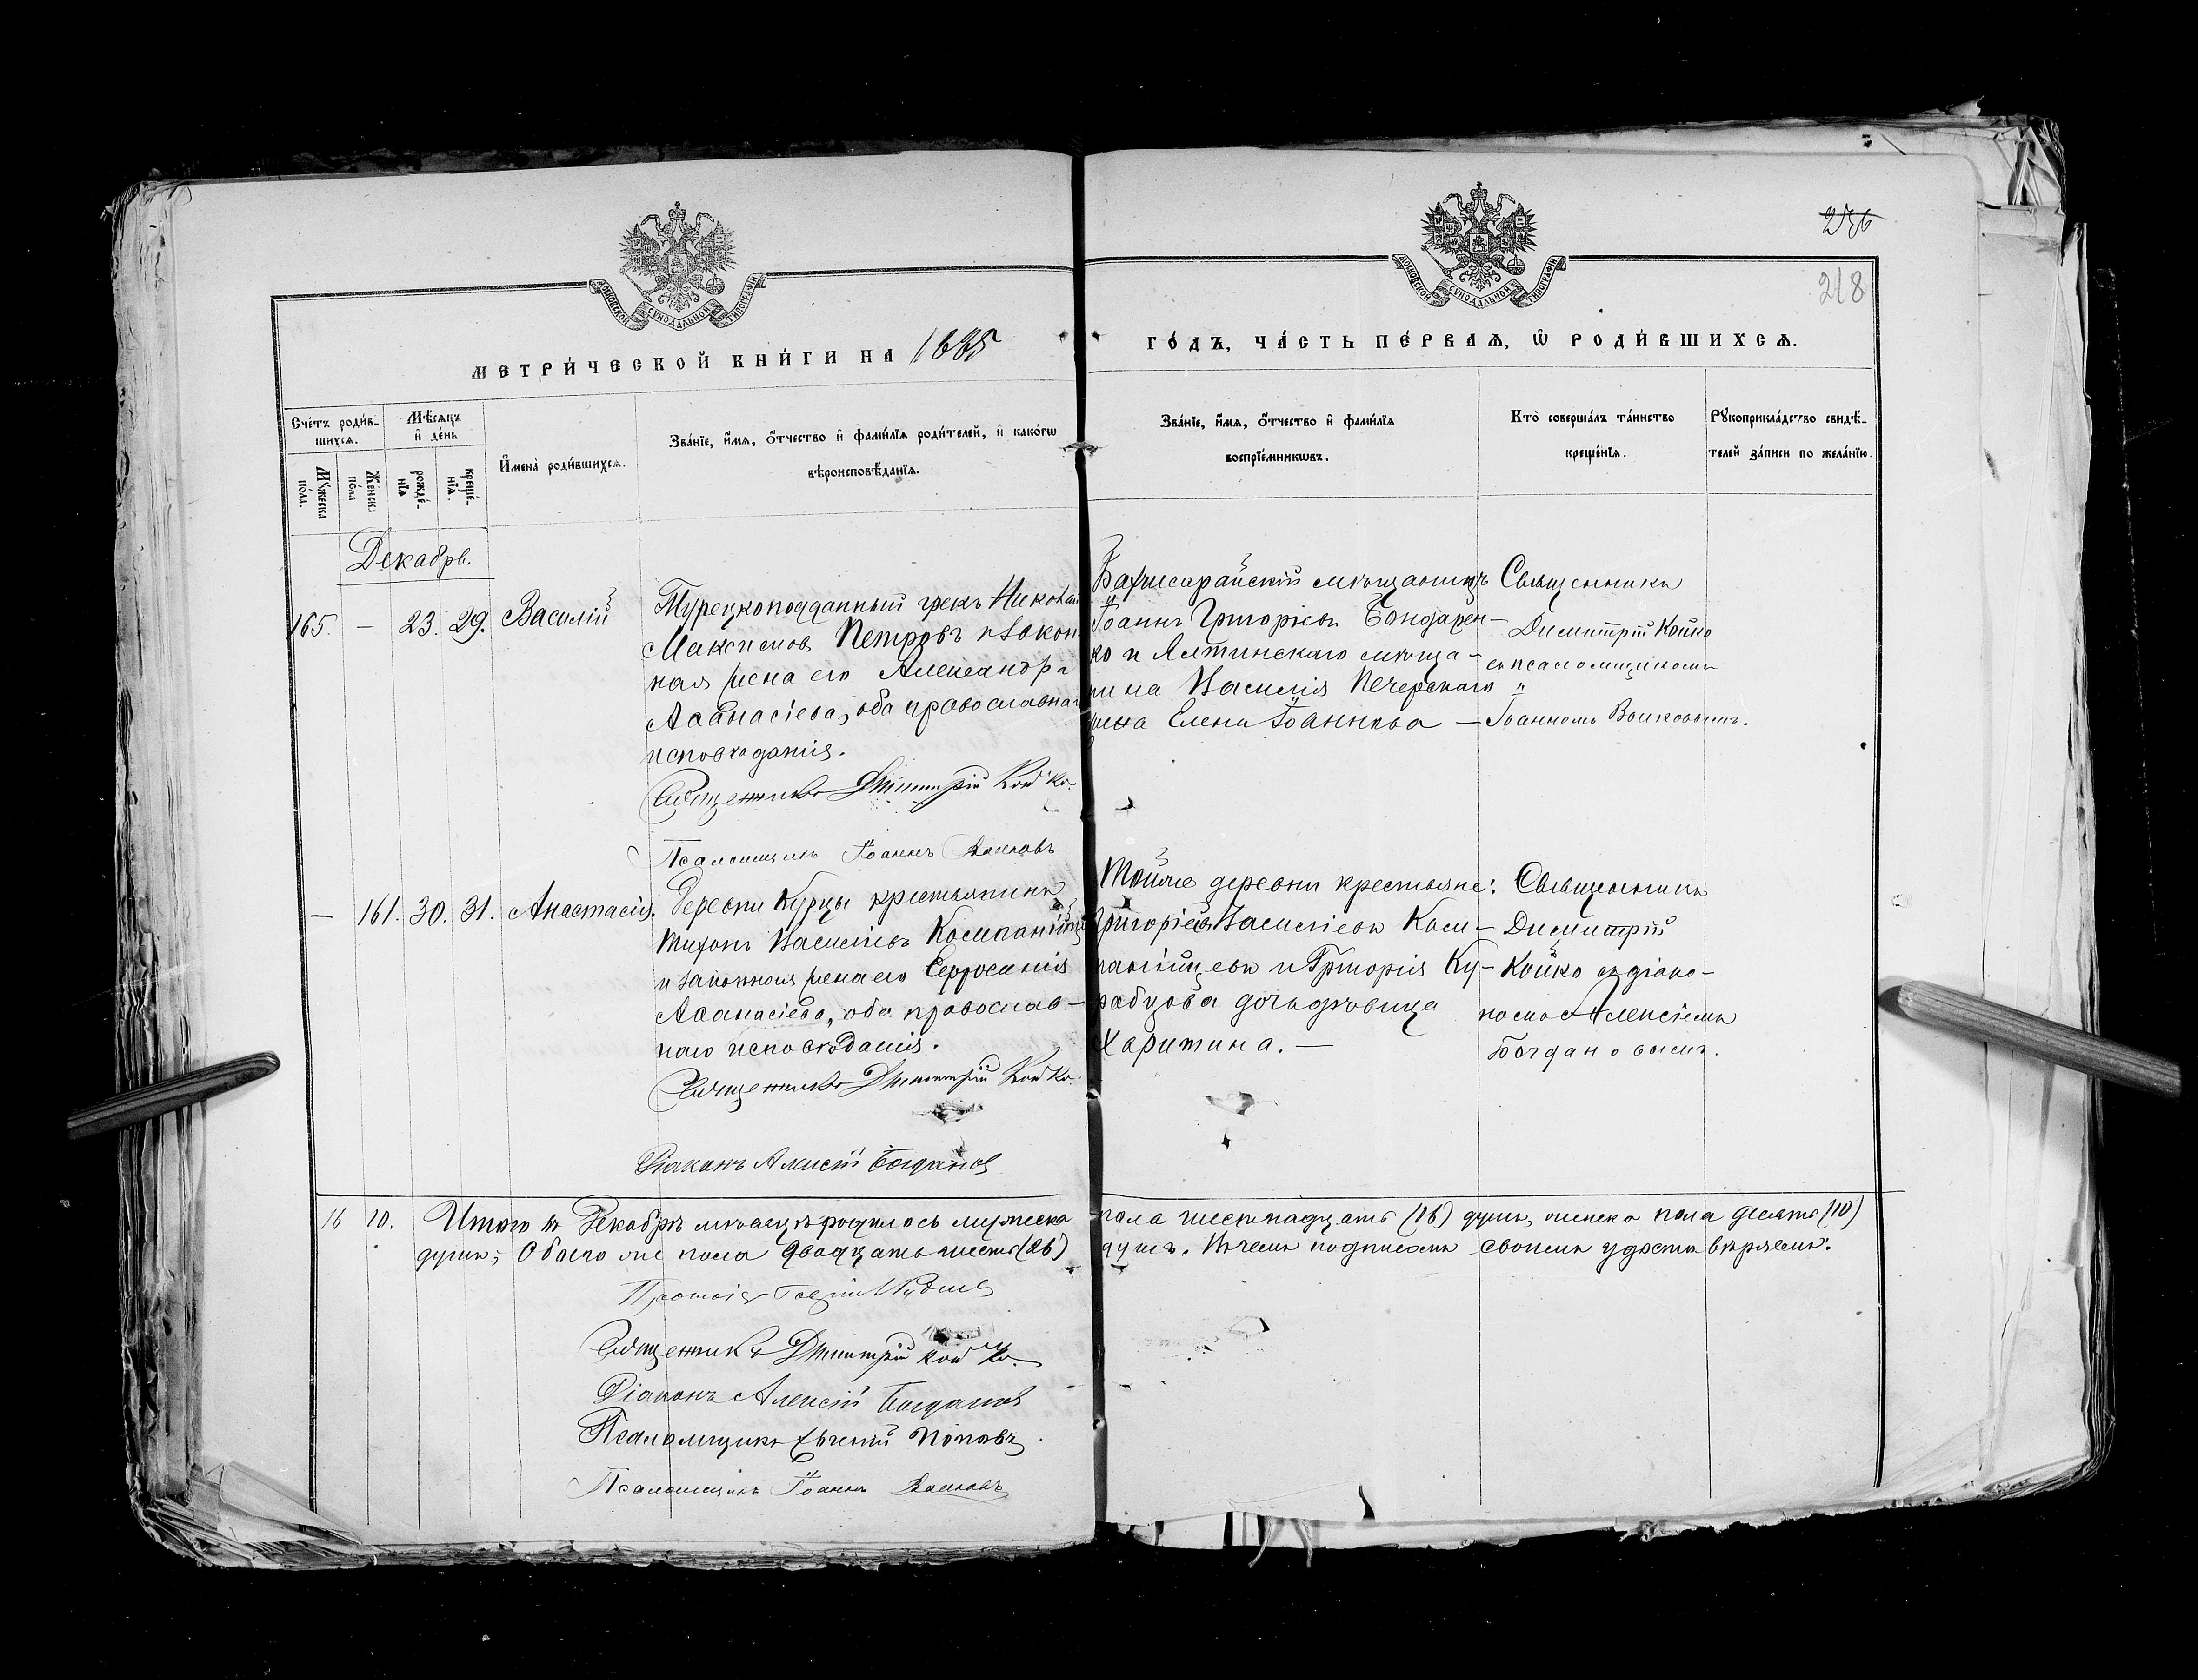 246
218
МОСКОВСКОЙ СѴНОДАЛЬНОЙ ТИПОГРАФІИ
МОСКОВСКОЙ СѴНОДАЛЬНОЙ ТИПОГРАФІИ
МЕТРИ́ЧЕСКОЙ КНИ́ГИ НА 1885
ГО́ДЪ, ЧА́СТЬ ПЕ́РВАѦ, Ѡ҆ РОДИ́ВШИХСѦ.
Сче́тъ роди́в-
шихсѧ.
Мѣ́сѧцъ
и҆ де́нь
Мꙋ́жеска
по́ла.
Же́нска
по́ла
рожде́-
нїѧ
креще́-
нїѧ.
И҆мена̀ роди́вшихсѧ.
Зва́нїе, и҆́мѧ, ѻ҆́тчество и҆ фами́лїѧ роди́телей, и҆ како́гѡ
вѣроисповѣ́данїѧ.
Зва́нїе, и҆́мѧ, ѻ҆́тчество и҆ фами́лїѧ
воспрїе́мникѡвъ.
Кто̀ соверша́лъ та́инство
креще́нїѧ.
Рꙋкоприкла́дство свидѣ́-
телей за́писи по жела́нїю.
Декабрь.
165. — 23. 29. Василій
Турецкоподданный грекъ Николай
Максимовъ Петровъ и закон-
ная жена его Александра
Аѳанасіева, оба православнаго
исповѣданія.
Священникъ Димитрій Койко.
Псаломщикъ Іоаннъ Волковъ
Бахчисарайскій мѣщанинъ
Іоаннъ Григорьевъ Бондарен-
ко и Ялтинскаго мѣща-
нина Василія Печерскаго
жена Елена Іоаннова —
Священникъ
Димитрій Койко
съ псаломщикомъ
Іоанномъ Волковымъ.
— 161. 30. 31. Анастасія.
Деревни Курцы крестьянинъ
Тихонъ Васильевъ
и законная жена его Евфросинія
Аѳанасіева, оба православ-
наго исповѣданія.
Священникъ Димитрій Койко.
Діаконъ Алексій Богдановъ
Тойже деревни крестьяне:
Григорій Васильевъ Ком-
панійцевъ и Григорія Ку-
рабцова дочь дѣвица
Харитина. —
Священникъ
Димитрій
Койко съ діако-
номъ Алексіемъ
Богдановымъ.
16 10. Итого въ Декабрѣ мѣсяцѣ родилось мужеска пола шестнадцать (16) душъ, женска пола десять (10)
душъ; Обоего же пола двадцать шесть (26) душъ. Въ чемъ подписомъ своимъ удостовѣряемъ.
Священникъ Димитрій Койко.
Діаконъ Алексій Богдановъ
Псаломщикъ Евгеній Поповъ.
Псаломщикъ Іоаннъ Волковъ